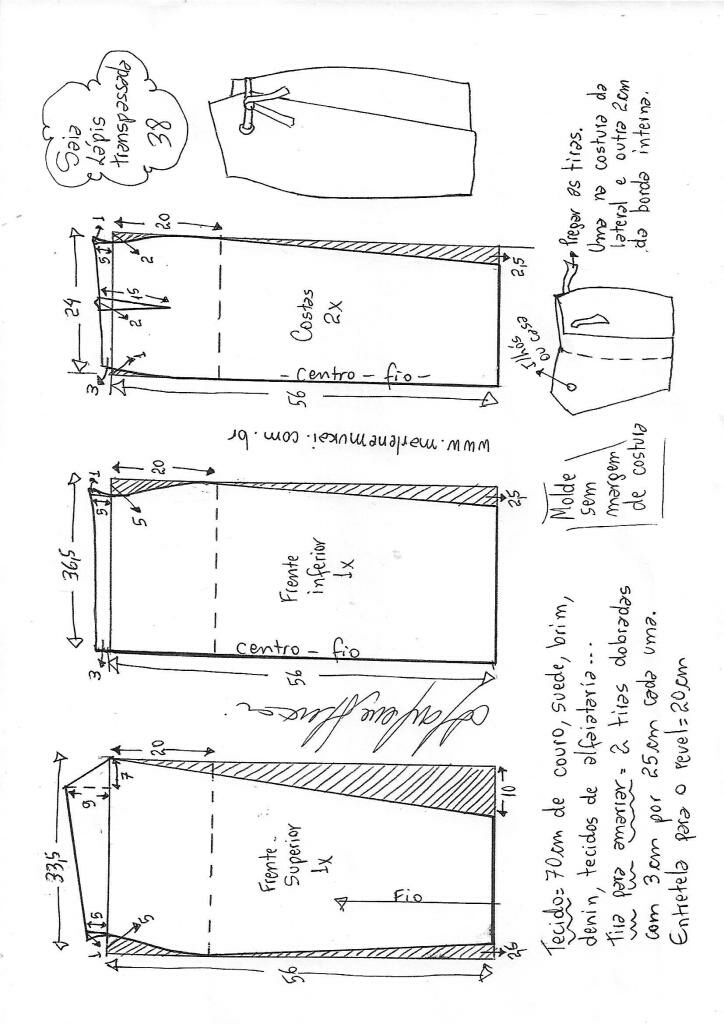 Saia
Lápis
transpassada
38
24
1
5
2
20
15
2
1
3
Costas
2x
- Centro - fio -
56
2,5
Pregar as tiras.
Uma na costura da
lateral e outra 2cm
da borda interna.
Ilhós
ou casa
www.marlenemukai.com.br
36,5
1
5
5
20
3
Frente
inferior
1x
Centro - fio
56
2,5
Molde
sem
margem
de costura
33,5
9
7
20
5
5
1
Frente
Superior
1x
Fio
56
10
2,5
Tecido = 70cm de couro, suede, brim,
denin, tecidos de alfaiataria...
Tira para amarrar = 2 tiras dobradas
com 3cm por 25cm cada uma.
Entretela para o revel = 20cm